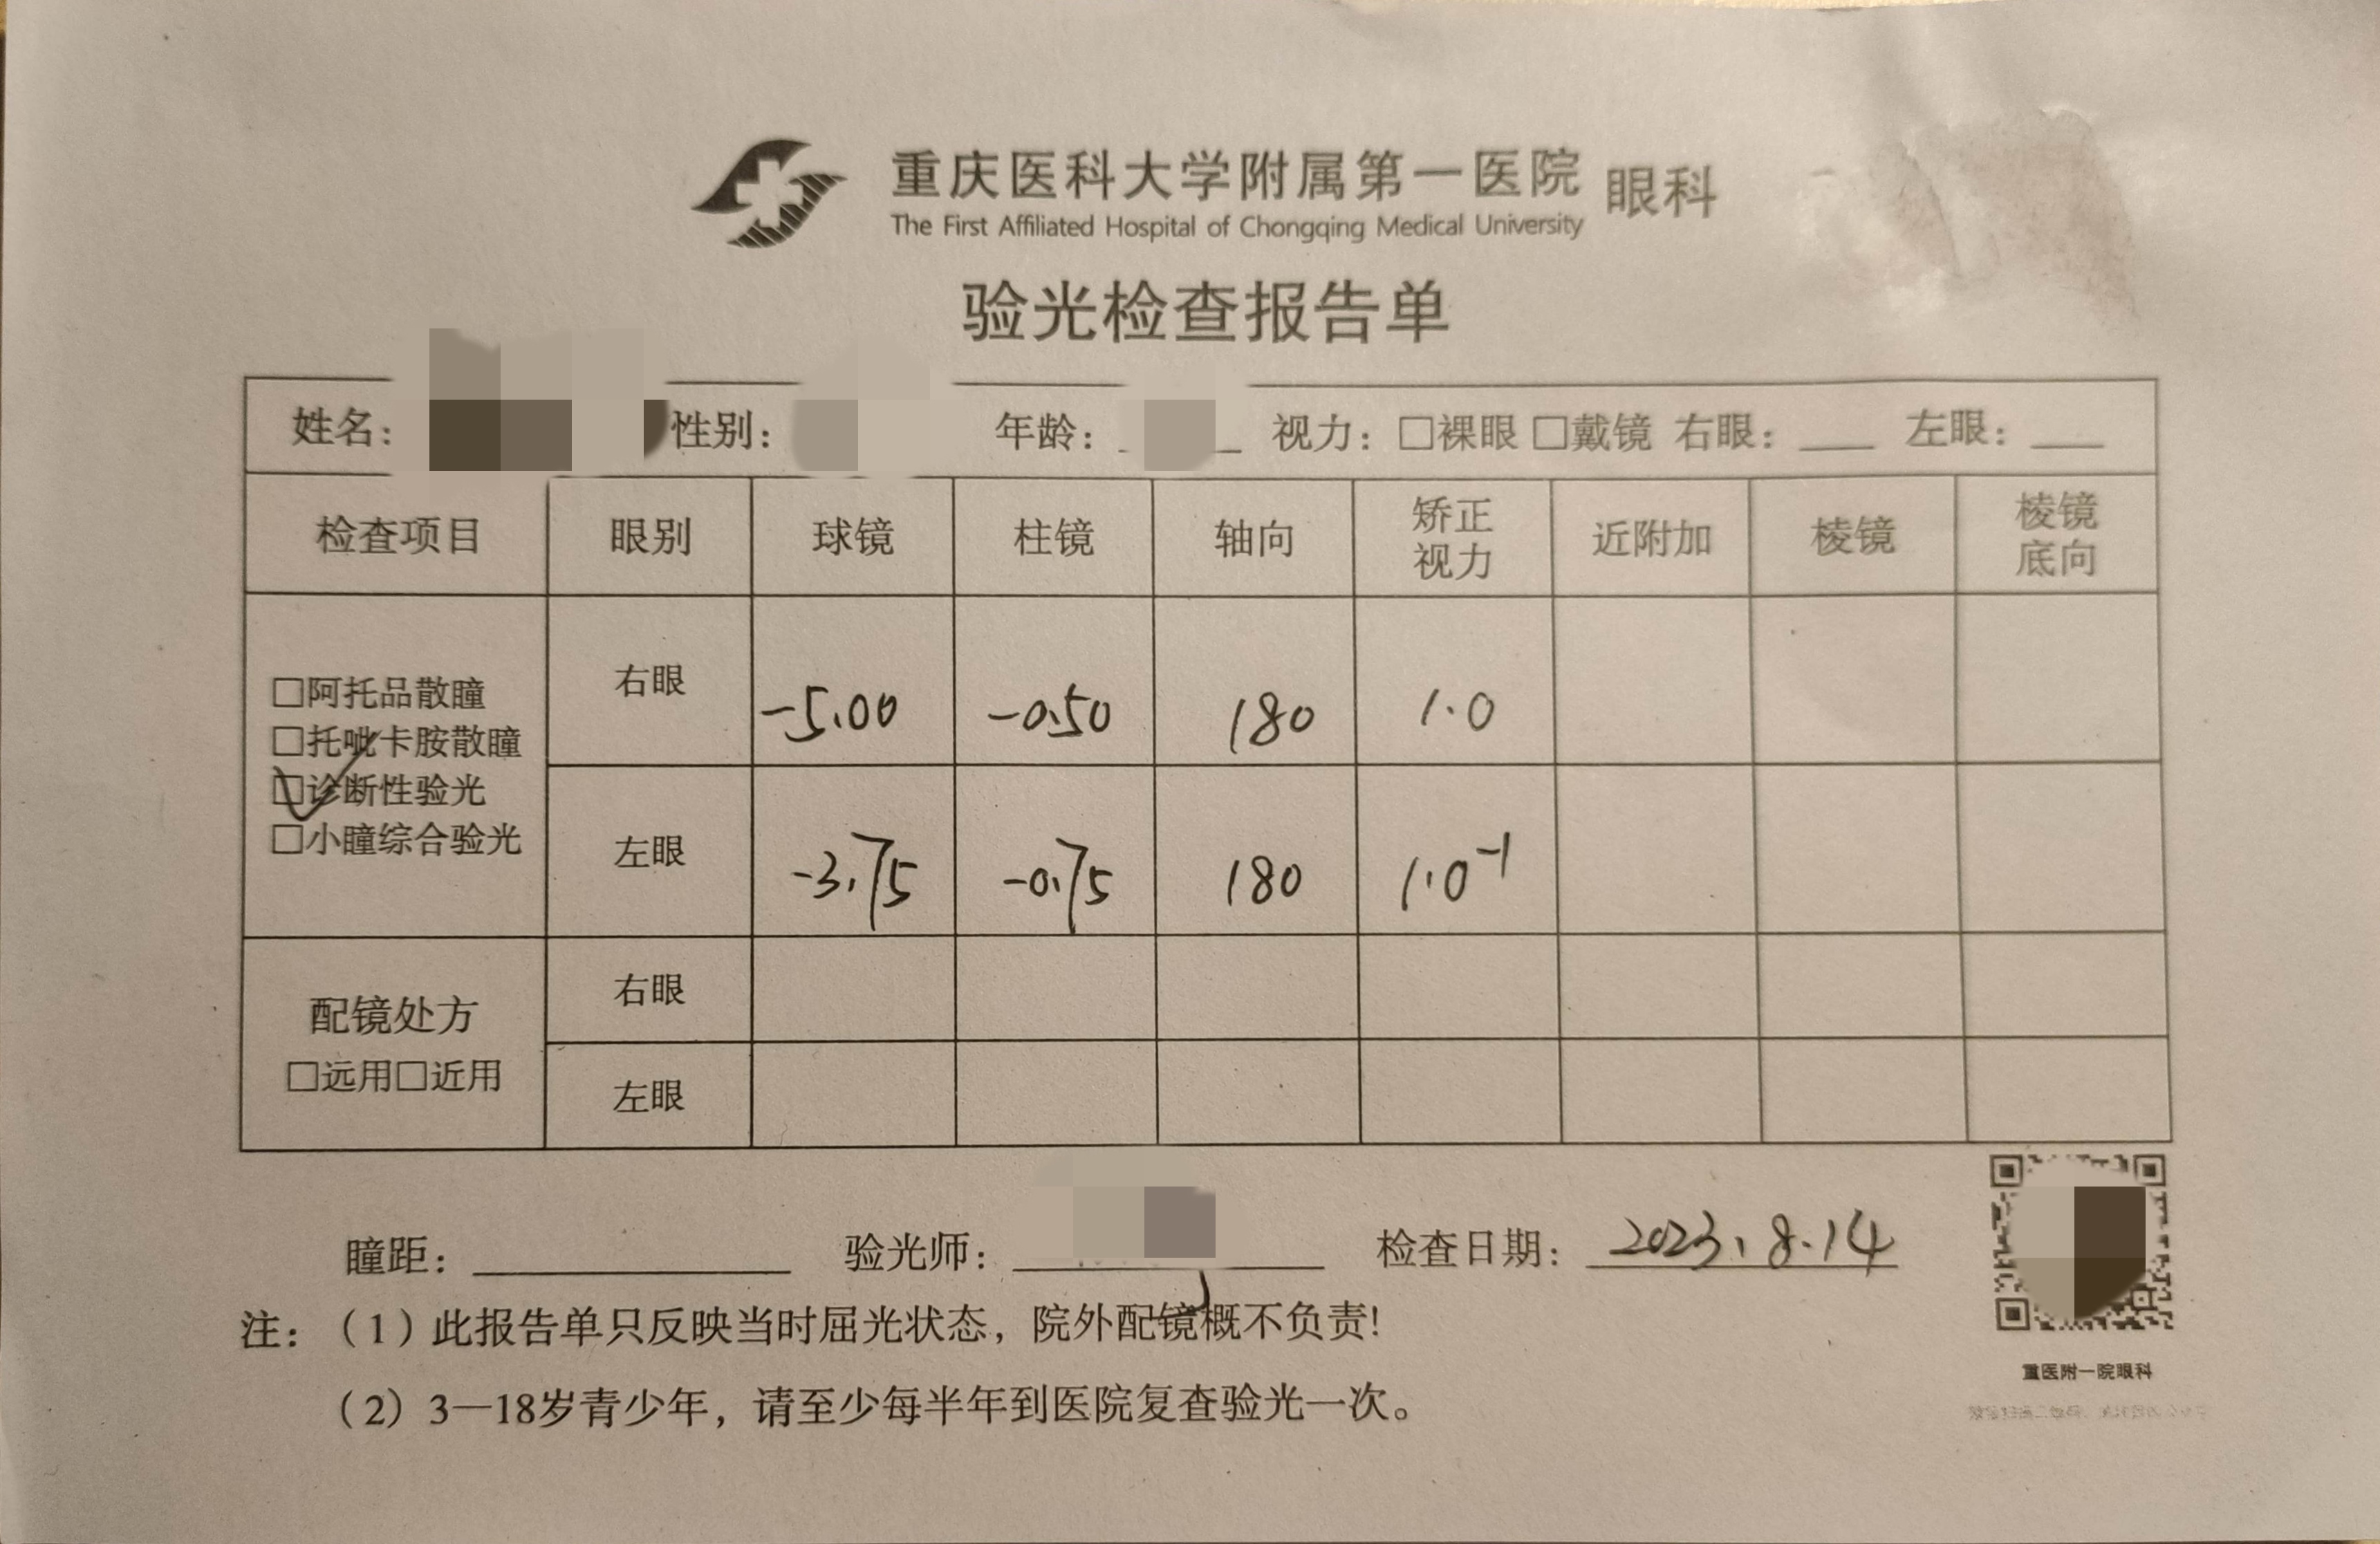 重庆医科大学附属第一医院 眼科
The First Affiliated Hospital of Chongqing Medical University
验光检查报告单
姓名： 性别： 年龄： 视力：□裸眼 □戴镜 右眼： 左眼：
检查项目 眼别 球镜 柱镜 轴向 矫正视力 近附加 棱镜 棱镜底向
□阿托品散瞳
□托吡卡胺散瞳
☑诊断性验光
□小瞳综合验光
右眼 -5.00 -0.50 180 1.0
左眼 -3.75 -0.75 180 1.0⁻¹
配镜处方
□远用□近用
右眼
左眼
瞳距： 验光师： 检查日期：2023.8.14
注：（1）此报告单只反映当时屈光状态，院外配镜概不负责！
（2）3—18岁青少年，请至少每半年到医院复查验光一次。
重医附一院眼科